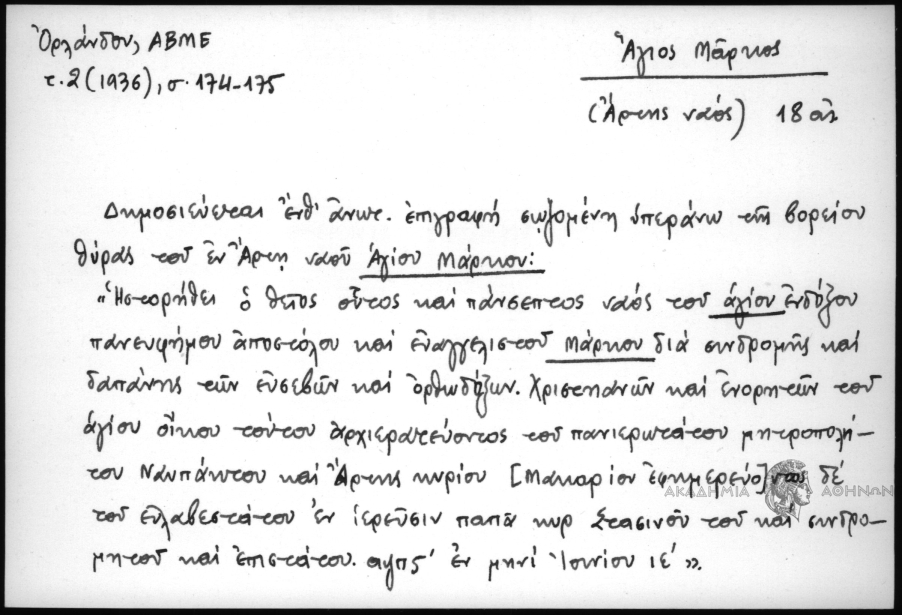 Ὀρλάνδου, ΑΒΜΕ
τ. 2 (1936), σ. 174-175
Ἅγιος Μᾶρκος
(Ἄρτης ναός) 18 αἰ.
Δημοσιεύεται ἔνθ' ἄνωτ. ἐπιγραφή σῳζομένη ὑπεράνω τῆς βορείου
θύρας τοῦ ἐν Ἄρτῃ ναοῦ Ἁγίου Μάρκου:
"Ἡστορήθει ὁ θεῖος οὗτος καί πάνσεπτος ναός τοῦ ἁγίου ἐνδόξου
πανευφήμου ἀποστόλου καί εὐαγγελιστοῦ Μάρκου διά συνδρομῆς καί
δαπάνης τῶν εὐσεβῶν καί ὀρθωδόξων. Χριστηανῶν καί ἐνορητῶν τοῦ
ἁγίου οἴκου τούτου ἀρχιερατεύοντος τοῦ πανιερωτάτου μητροπολή-
του Ναυπάκτου καί Ἄρτης κυρίου [Μακαρίου ἐφημερεύο]ντος δέ
τοῦ εὐλαβεστάτου ἐν ἱερεῦσιν παπᾶ κυρ Στασινοῦ τοῦ καί συνδρο-
μητοῦ καί ἐπιστάτου. αψπς' ἐν μηνί Ἰουνίου ιέ".
ΑΚΑΔΗΜΙΑ ΑΘΗΝΩΝ